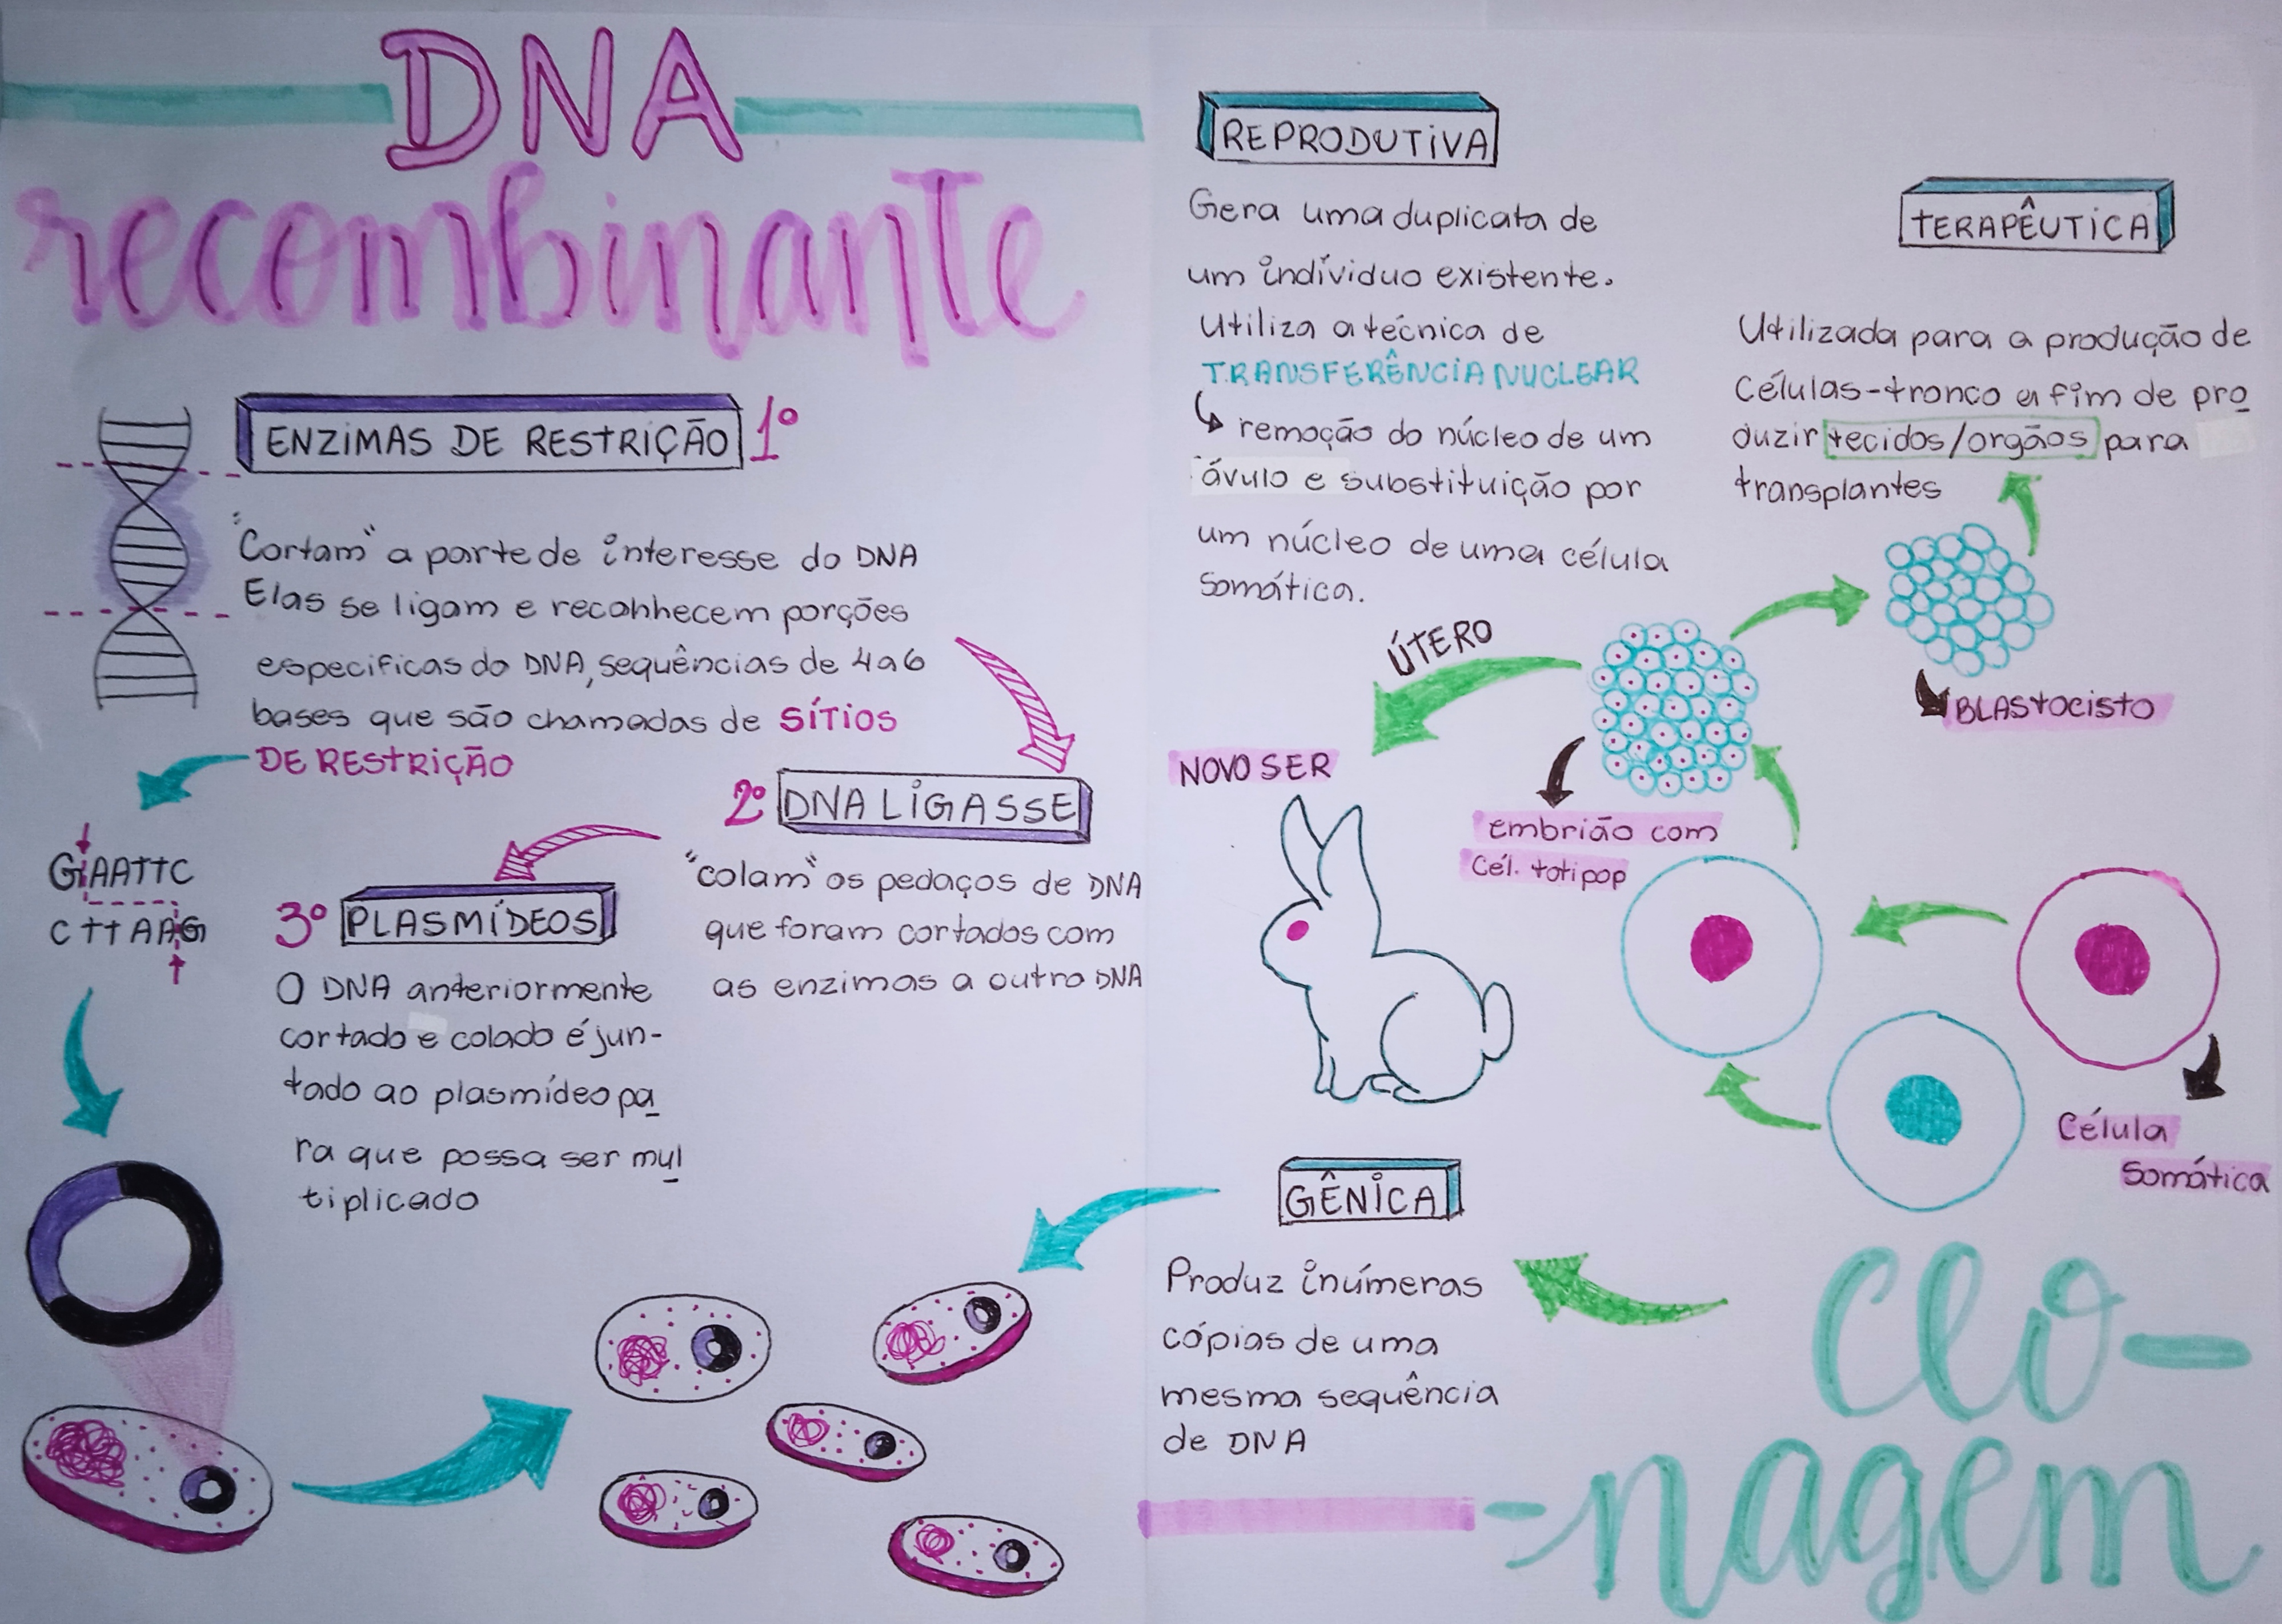 DNA
recombinante
ENZIMAS DE RESTRIÇÃO 1º
"Cortam" a parte de interesse do DNA
Elas se ligam e reconhecem porções
especificas do DNA, sequências de 4 a 6
bases que são chamadas de SÍTIOS
DE RESTRIÇÃO
GAATTC
CTTAAG
2º DNA LIGASSE
"colam" os pedaços de DNA
que foram cortados com
as enzimas a outro DNA
3º PLASMÍDEOS
O DNA anteriormente
cortado e colado é jun-
tado ao plasmídeo pa
ra que possa ser mul
tiplicado
REPRODUTIVA
Gera uma duplicata de
um indíviduo existente.
Utiliza a técnica de
TRANSFERÊNCIA NUCLEAR
remoção do núcleo de um
óvulo e substituição por
um núcleo de uma célula
somática.
TERAPÊUTICA
Utilizada para a produção de
Células-tronco a fim de pro
duzir tecidos/orgãos para
transplantes
BLASTOCISTO
ÚTERO
NOVO SER
embrião com
Cél. totipop
Célula
Somática
GÊNICA
Produz inúmeras
cópias de uma
mesma sequência
de DNA
Clo-
-nagem